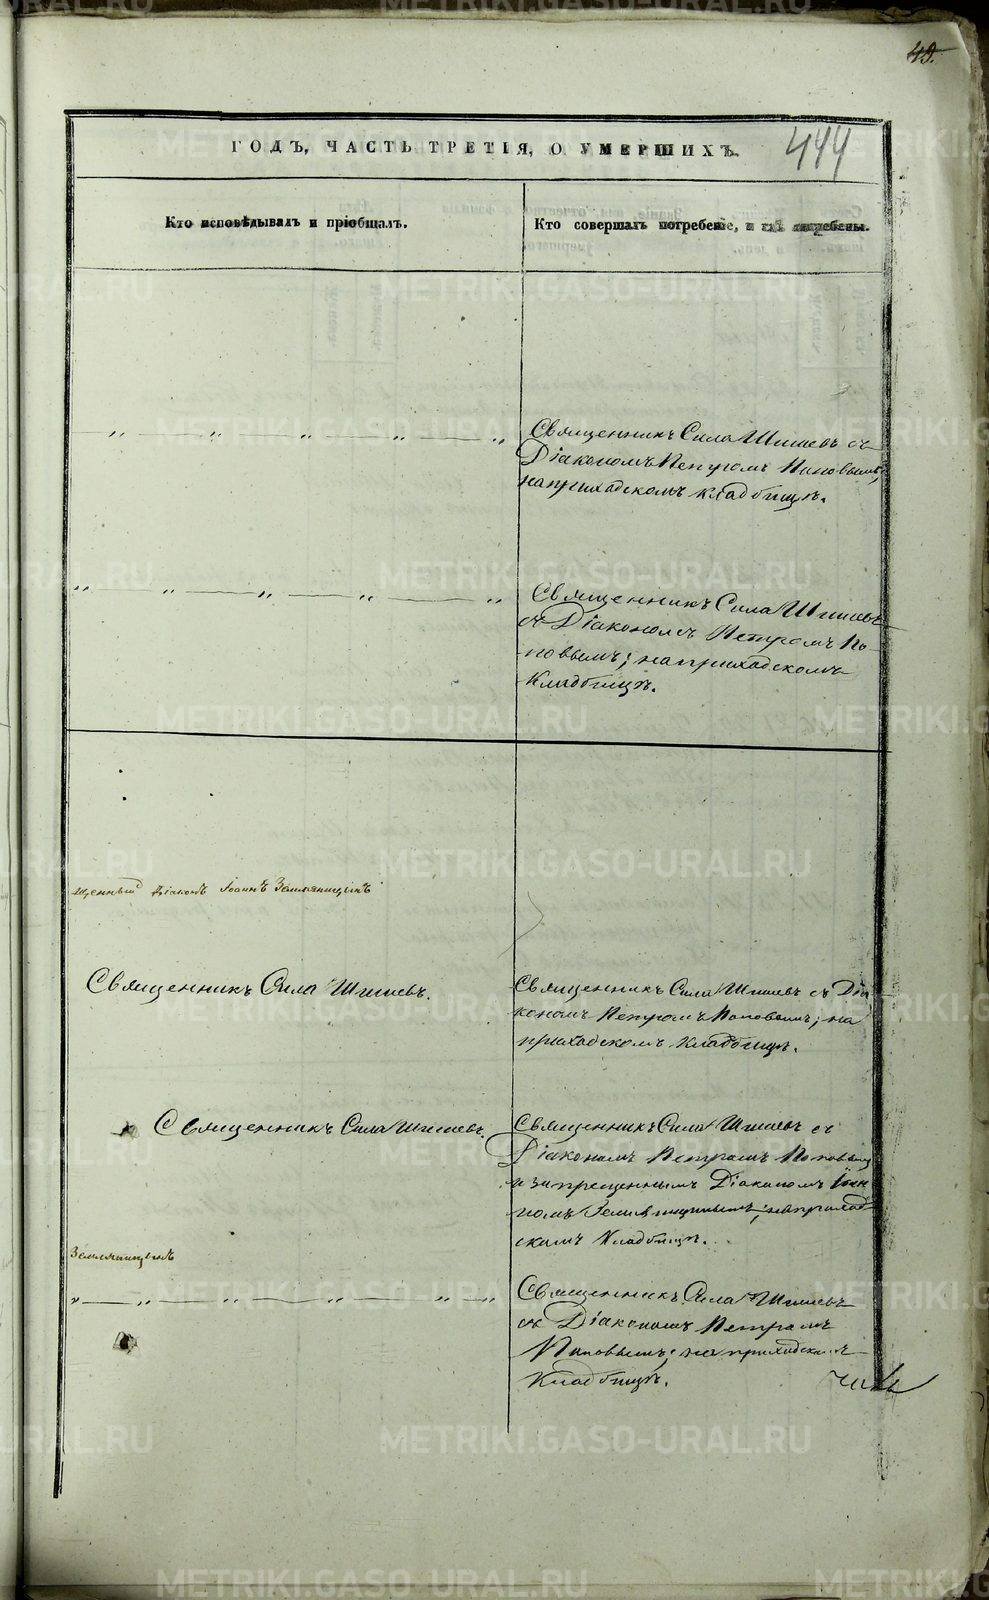 49.
444
ГОДЪ, ЧАСТЬ ТРЕТІЯ, О УМЕРШИХЪ.
Кто исповѣдывалъ и пріобщалъ.
Кто совершалъ погребеніе, и гдѣ погребены.
Священникъ Сила Шишевъ съ
Діакономъ Петромъ Поповымъ;
на приходскомъ кладбищѣ.
Священникъ Сила Шишевъ
съ Діакономъ Петромъ По-
повымъ; на приходскомъ
Кладбищѣ.
щенный Діаконъ Іоаннъ Земляницынъ
Священникъ Сила Шишевъ.
Священникъ Сила Шишевъ съ Діа
кономъ Петромъ Поповымъ; на
приходскомъ Кладбищѣ.
Священникъ Сила Шишевъ.
Священникъ Сила Шишевъ съ
Діакономъ Петромъ Поповымъ
и запрещеннымъ Діакономъ Іоан
номъ Земляницынымъ; на приход
скомъ Кладбищѣ.
Земляницынъ
Священникъ Сила Шишевъ
съ Діакономъ Петромъ
Поповымъ; на приходскомъ
Кладбищѣ.
METRIKI.GASO-URAL.RU